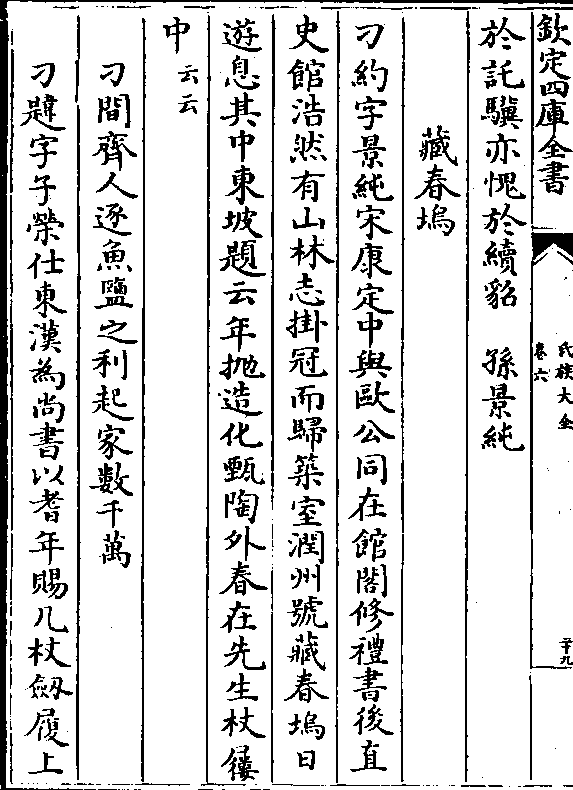 欽定四庫全書
氏族大全
卷六
二十九
於託驥亦愧於續貂　孫景純
藏春塢
刁約字景純宋康定中與歐公同在館閣修禮書後直
史館浩然有山林志掛冠而歸築室潤州號藏春塢日
遊息其中東坡題云年抛造化甄陶外春在先生杖屨
中云云
刁間齊人逐魚鹽之利起家數千萬
刁韙字子榮仕東漢為尚書以耆年賜几杖劔履上